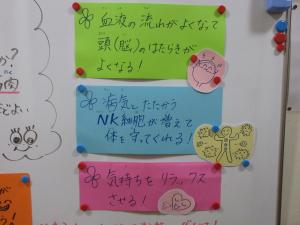 血液の流れがよくなって
頭(脳)のはたらきが
よくなる!
病気とたたかう
NK細胞が増えて
体を守ってくれる!
気持ちをリラックス
させる!